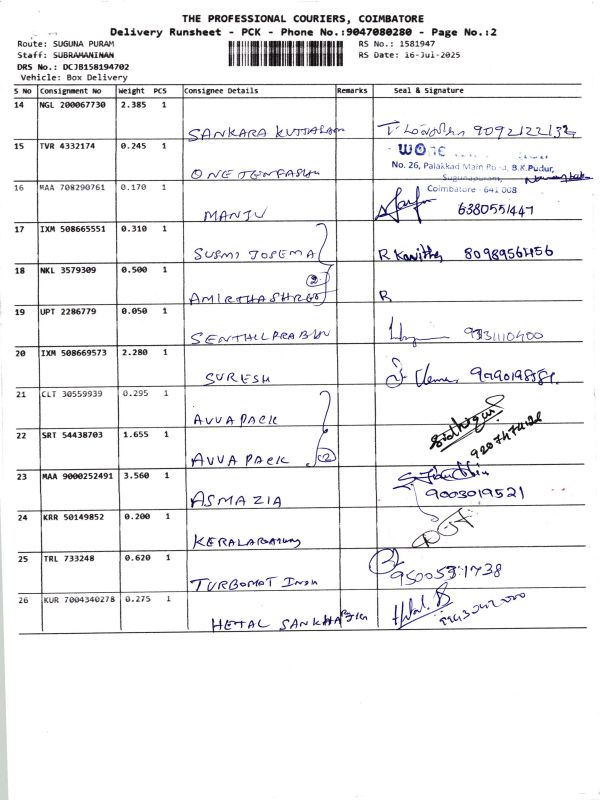 THE PROFESSIONAL COURIERS, COIMBATORE
Delivery Runsheet - PCK - Phone No.:9047080280 - Page No.:2
Route: SUGUNA PURAM RS No.: 1581947
Staff: SUBRAMANINAN RS Date: 16-Jul-2025
DRS No.: DCJB158194702
Vehicle: Box Delivery
S No Consignment No Weight PCS Consignee Details Remarks Seal & Signature
14 NGL 200067730 2.385 1
SANKARA 9092122132
15 TVR 4332174 0.245 1
No. 26, Palakkad Main Road, B.K.Pudur,
Sugunapuram,
Coimbatore - 641 008
16 MAA 708290761 0.170 1
MANJU 6380551447
17 IXM 508665551 0.310 1
SUSMI JOSEMA R Kavitha 8098956456
18 NKL 3579309 0.500 1
2
AMIRTHASHREE R
19 UPT 2286779 0.050 1
SENTHILPRABHU
20 IXM 508669573 2.280 1
SURESH
21 CLT 30559939 0.295 1
AVVA PACK
22 SRT 54438703 1.655 1
AVVA PACK 2
23 MAA 9000252491 3.560 1
ASMAZIA 9003019521
24 KRR 50149852 0.200 1
25 TRL 733248 0.620 1
TURBOMOT INDU
26 KUR 7004340278 0.275 1
HETAL